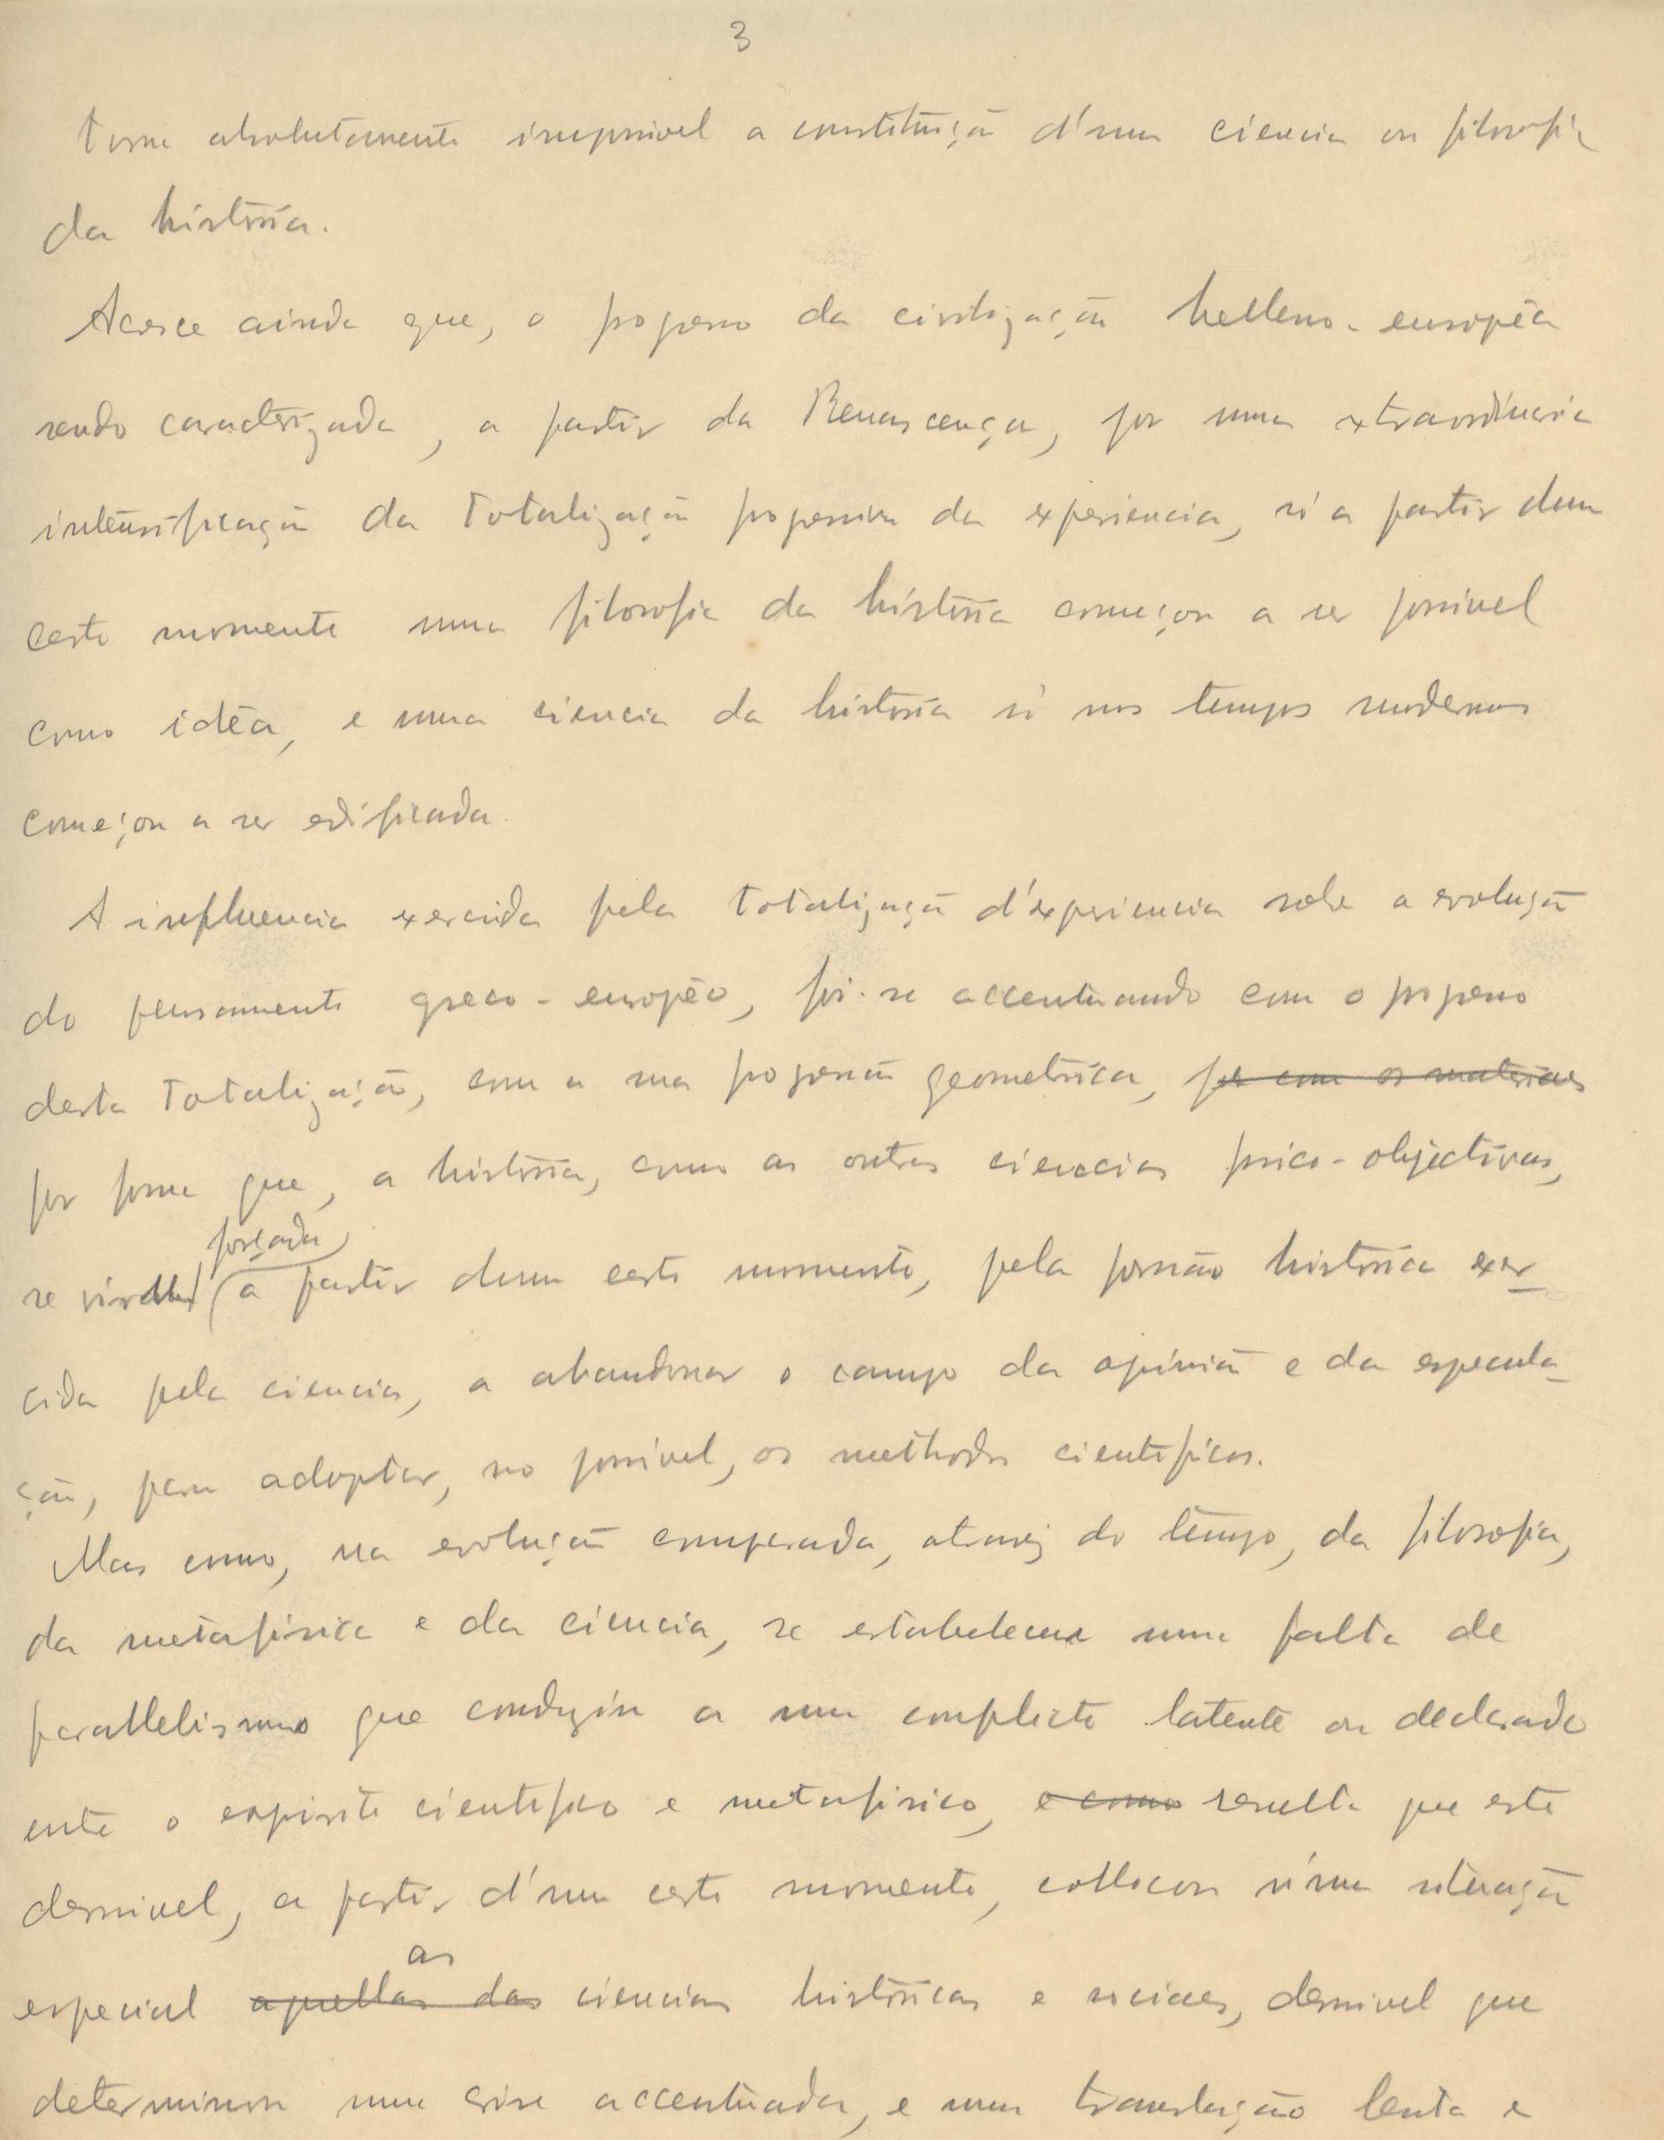 3
torna absolutamente impossivel a constituição d'uma ciencia ou filosofia
da história.
Acresce ainda que, o progresso da civilização helleno-européa
sendo caracterizada, a partir da Renascença, por uma extraordinaria
intensificação da Totalização progressiva da experiencia, só a partir dum
certo momento uma filosofia da história começou a ser possivel
como idéa, e uma ciencia da história só nos tempos modernos
começou a ser edificada.
A influencia exercida pela Totalização d'experiencia sobre a evolução
do pensamento greco-européo, foi-se accentuando com o progresso
desta Totalização, com a sua progressão geometrica, por com os materiaes
por forma que, a história, como as outras ciencias psico-objectivas,
forçada
se viram a partir dum certo momento, pela pressão histórica exer-
cida pela ciencia, a abandonar o campo da opinião e da especula-
ção, para adoptar, no possivel, os methodos cientificos.
Mas como, na evolução comparada, atravez do tempo, da filosofia,
da metafisica e da ciencia, se estabelecera uma falta de
parallelismo que conduziu a um conflicto latente ou declarado
entre o espirito cientifico e metafisico, e como resulta que este
desnivel, a partir d'um certo momento, collocou n'uma situação
as
especial aquellas das ciencias históricas e sociaes, desnivel que
determinou uma crise accentuada, e uma translação lenta e